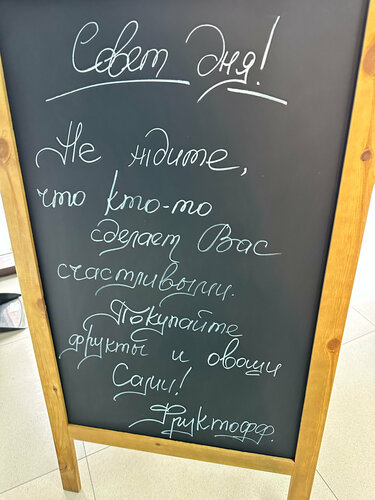 Совет дня!
Не ждите,
что кто-то
сделает Вас
счастливыми.
Покупайте
фрукты и овощи
Сами!
Фруктофф.